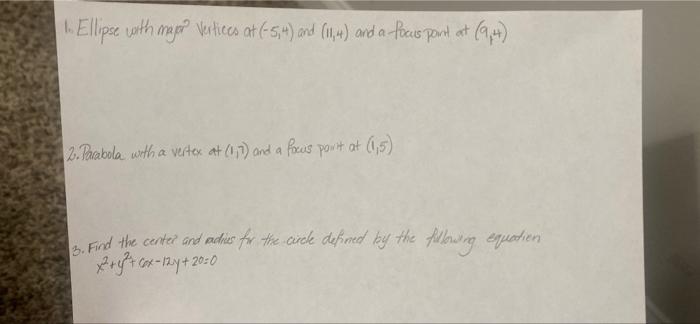 1. Ellipse with major vertices at (-5,4) and (11,4) and a focus point at (9,4)
2. Parabola with a vertex at (1,7) and a focus point at (1,5)
3. Find the center and radius for the circle defined by the following equation
x²+y²+6x-12y+20=0